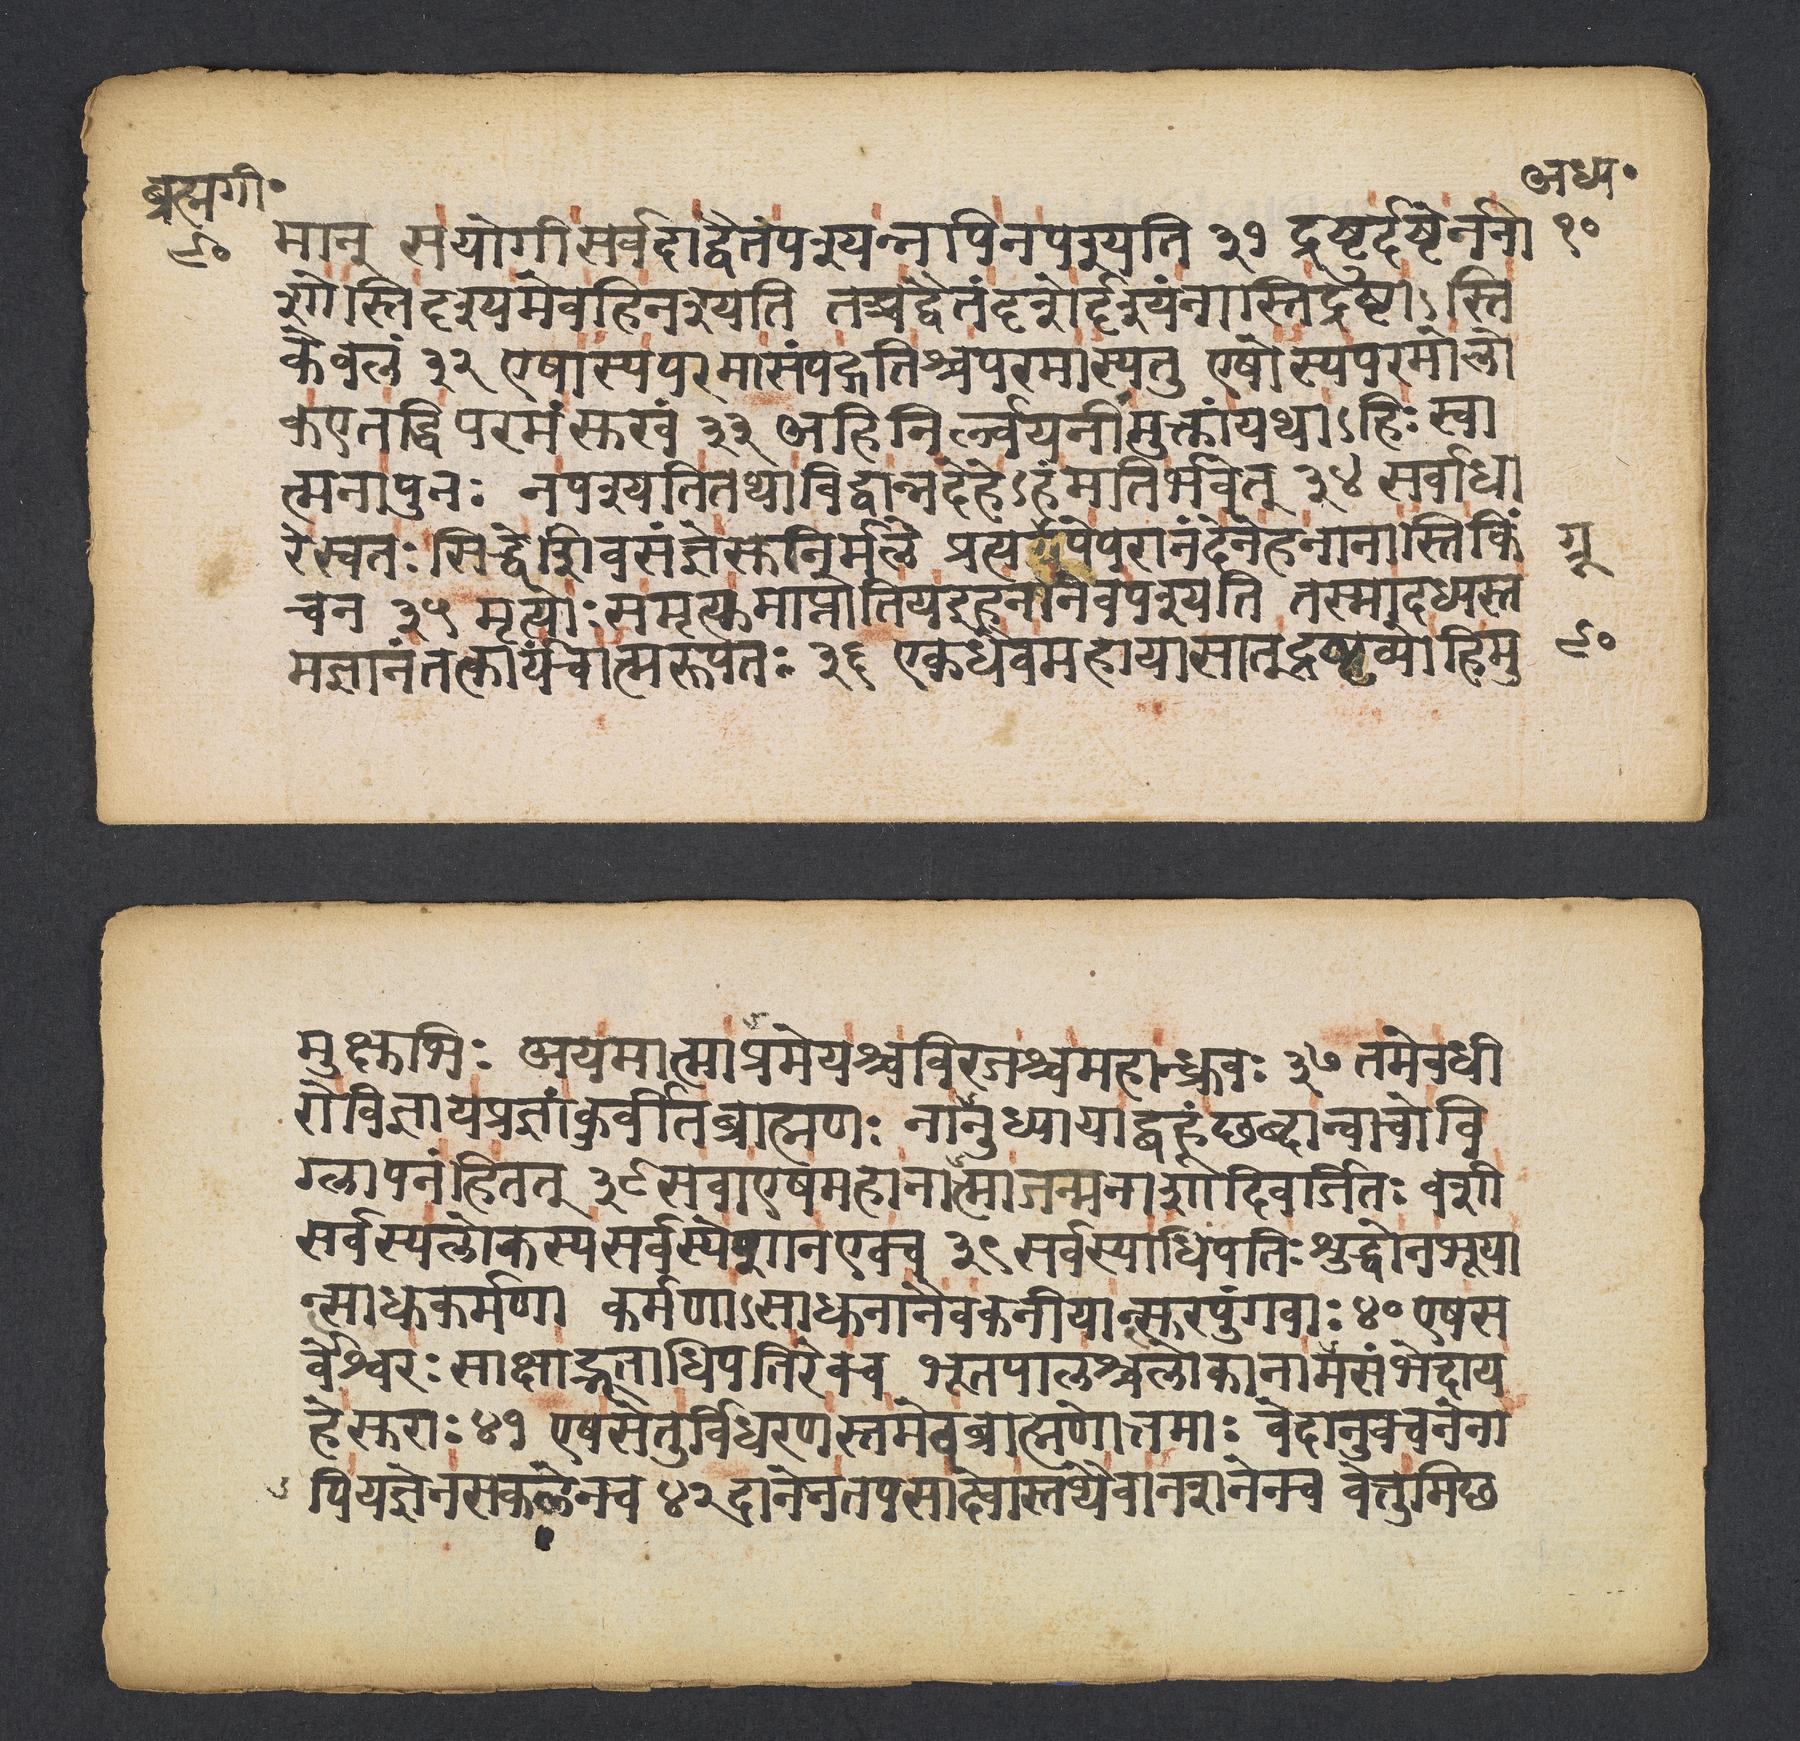 ब्रह्मगी॰
अध्य॰
९०
मान् सयोगीसर्वदाद्वैतंपश्यन्नपिनपश्यति ३१ द्रष्टुर्दृष्टेर्नना
१०
शोस्तिदृश्यमेवहिनश्यति तच्चद्वैतंदृशेर्दृश्यंनास्तिद्रष्टाऽस्ति
केवलं ३२ एषास्यपरमासंपद्गतिश्चपरमास्यतु एषोस्यपरमोलो
कएतद्धिपरमंसुखं ३३ अहिनिर्ल्वयनींमुक्तांयथाऽहिःस्वा
त्मनापुनः नपश्यतितथाविद्वान्नदेहेऽहंमतिर्भवेत् ३४ सर्वाधा
रेस्वतःसिद्धेशिवसंज्ञेसुनिर्मले प्रत्यग्रूपेपरानंदेनेहनानास्तिकिं
ग्रू
चन ३५ मृत्योःसमृत्युमाप्नोतियइहनानेवपश्यति तस्मादध्यस्त
मज्ञानंतत्कार्यंचात्मरूपतः ३६ एकधैवमहायासात्द्रष्टव्योहिमु
९०
मुक्षुभिः अयमात्माप्रमेयश्चविरजश्चमहान्ध्रुवः ३७ तमेवधी
रोविज्ञायप्रज्ञांकुर्वीतब्राह्मणः नानुध्यायाद्बहूंछब्दान्वाचोवि
ग्लापनंहितत् ३८ सवाएषमहानात्माजन्मनाशादिवर्जितः वशी
सर्वस्यलोकस्यसर्वस्येशानएवच ३९ सर्वस्याधिपतिःशुद्धोनभूया
न्साधुकर्मणा कर्मणाऽसाधुनानैवकनीयान्सुरपुंगवाः ४० एषस
र्वेश्वरःसाक्षाद्भूताधिपतिरेवच भूतपालश्चलोकानामसंभेदाय
हेसुराः ४१ एषसेतुर्विधरणस्तमेवब्राह्मणोत्तमाः वेदानुवचनेना
पियज्ञेनसकलेनच ४२ दानेनतपसादेवास्तथैवानशनेनच वेत्तुमिछ